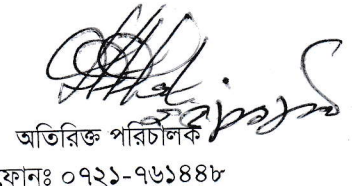 অতিরিক্ত পরিচালক
ফোনঃ ০৭২১-৭৬১৪৪৮